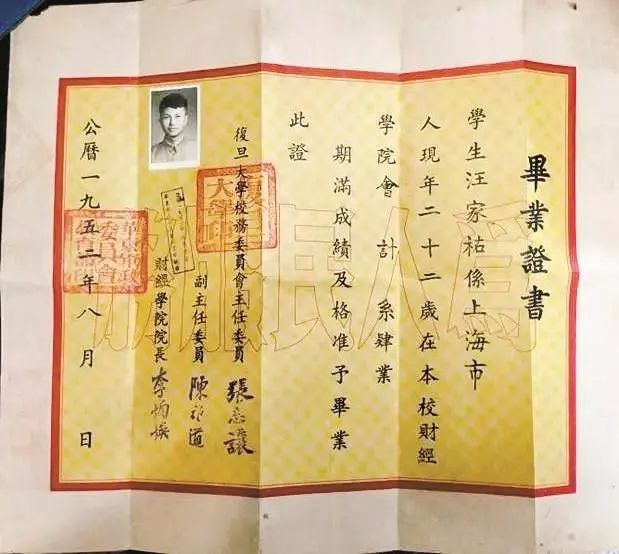 畢業證書
學生汪家祐係上海市
人現年二十二歲在本校財經
學院會計系肄業
期滿成績及格准予畢業
此證
復旦大學校務委員會主任委員 張志讓
副主任委員 陳望道
財經學院院長 李炳煥
公曆一九五二年八月 日
為人民服務